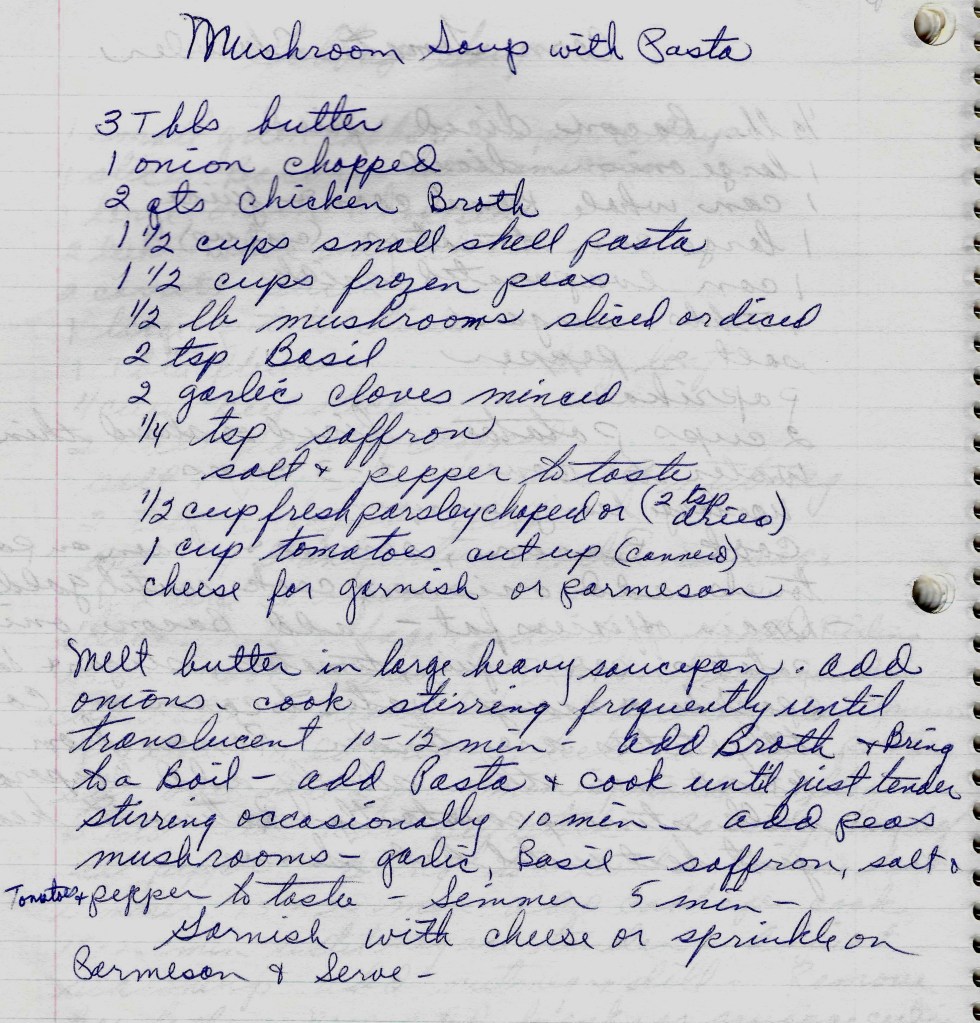 Mushroom Soup with Pasta
3 Tbls butter
1 onion chopped
2 qts chicken Broth
1 1/2 cups small shell pasta
1 1/2 cups frozen peas
1/2 lb mushrooms sliced or diced
2 tsp Basil
2 garlic cloves minced
1/4 tsp saffron
salt & pepper to taste
1/2 cup fresh parsley choped or (2 tsp dried)
1 cup tomatoes, cut up (canned)
cheese for garnish or parmeson
Melt butter in large heavy saucepan. add
onions. cook stirring frequently until
translucent 10-12 min - add Broth & Bring
to a Boil - add Pasta & cook until just tender
stirring occasionally 10 min - add peas
mushrooms - garlic, Basil - saffron, salt &
Tomatoes & pepper to taste - Simmer 5 min -
Garnish with cheese or sprinkle on
Parmeson & Serve -